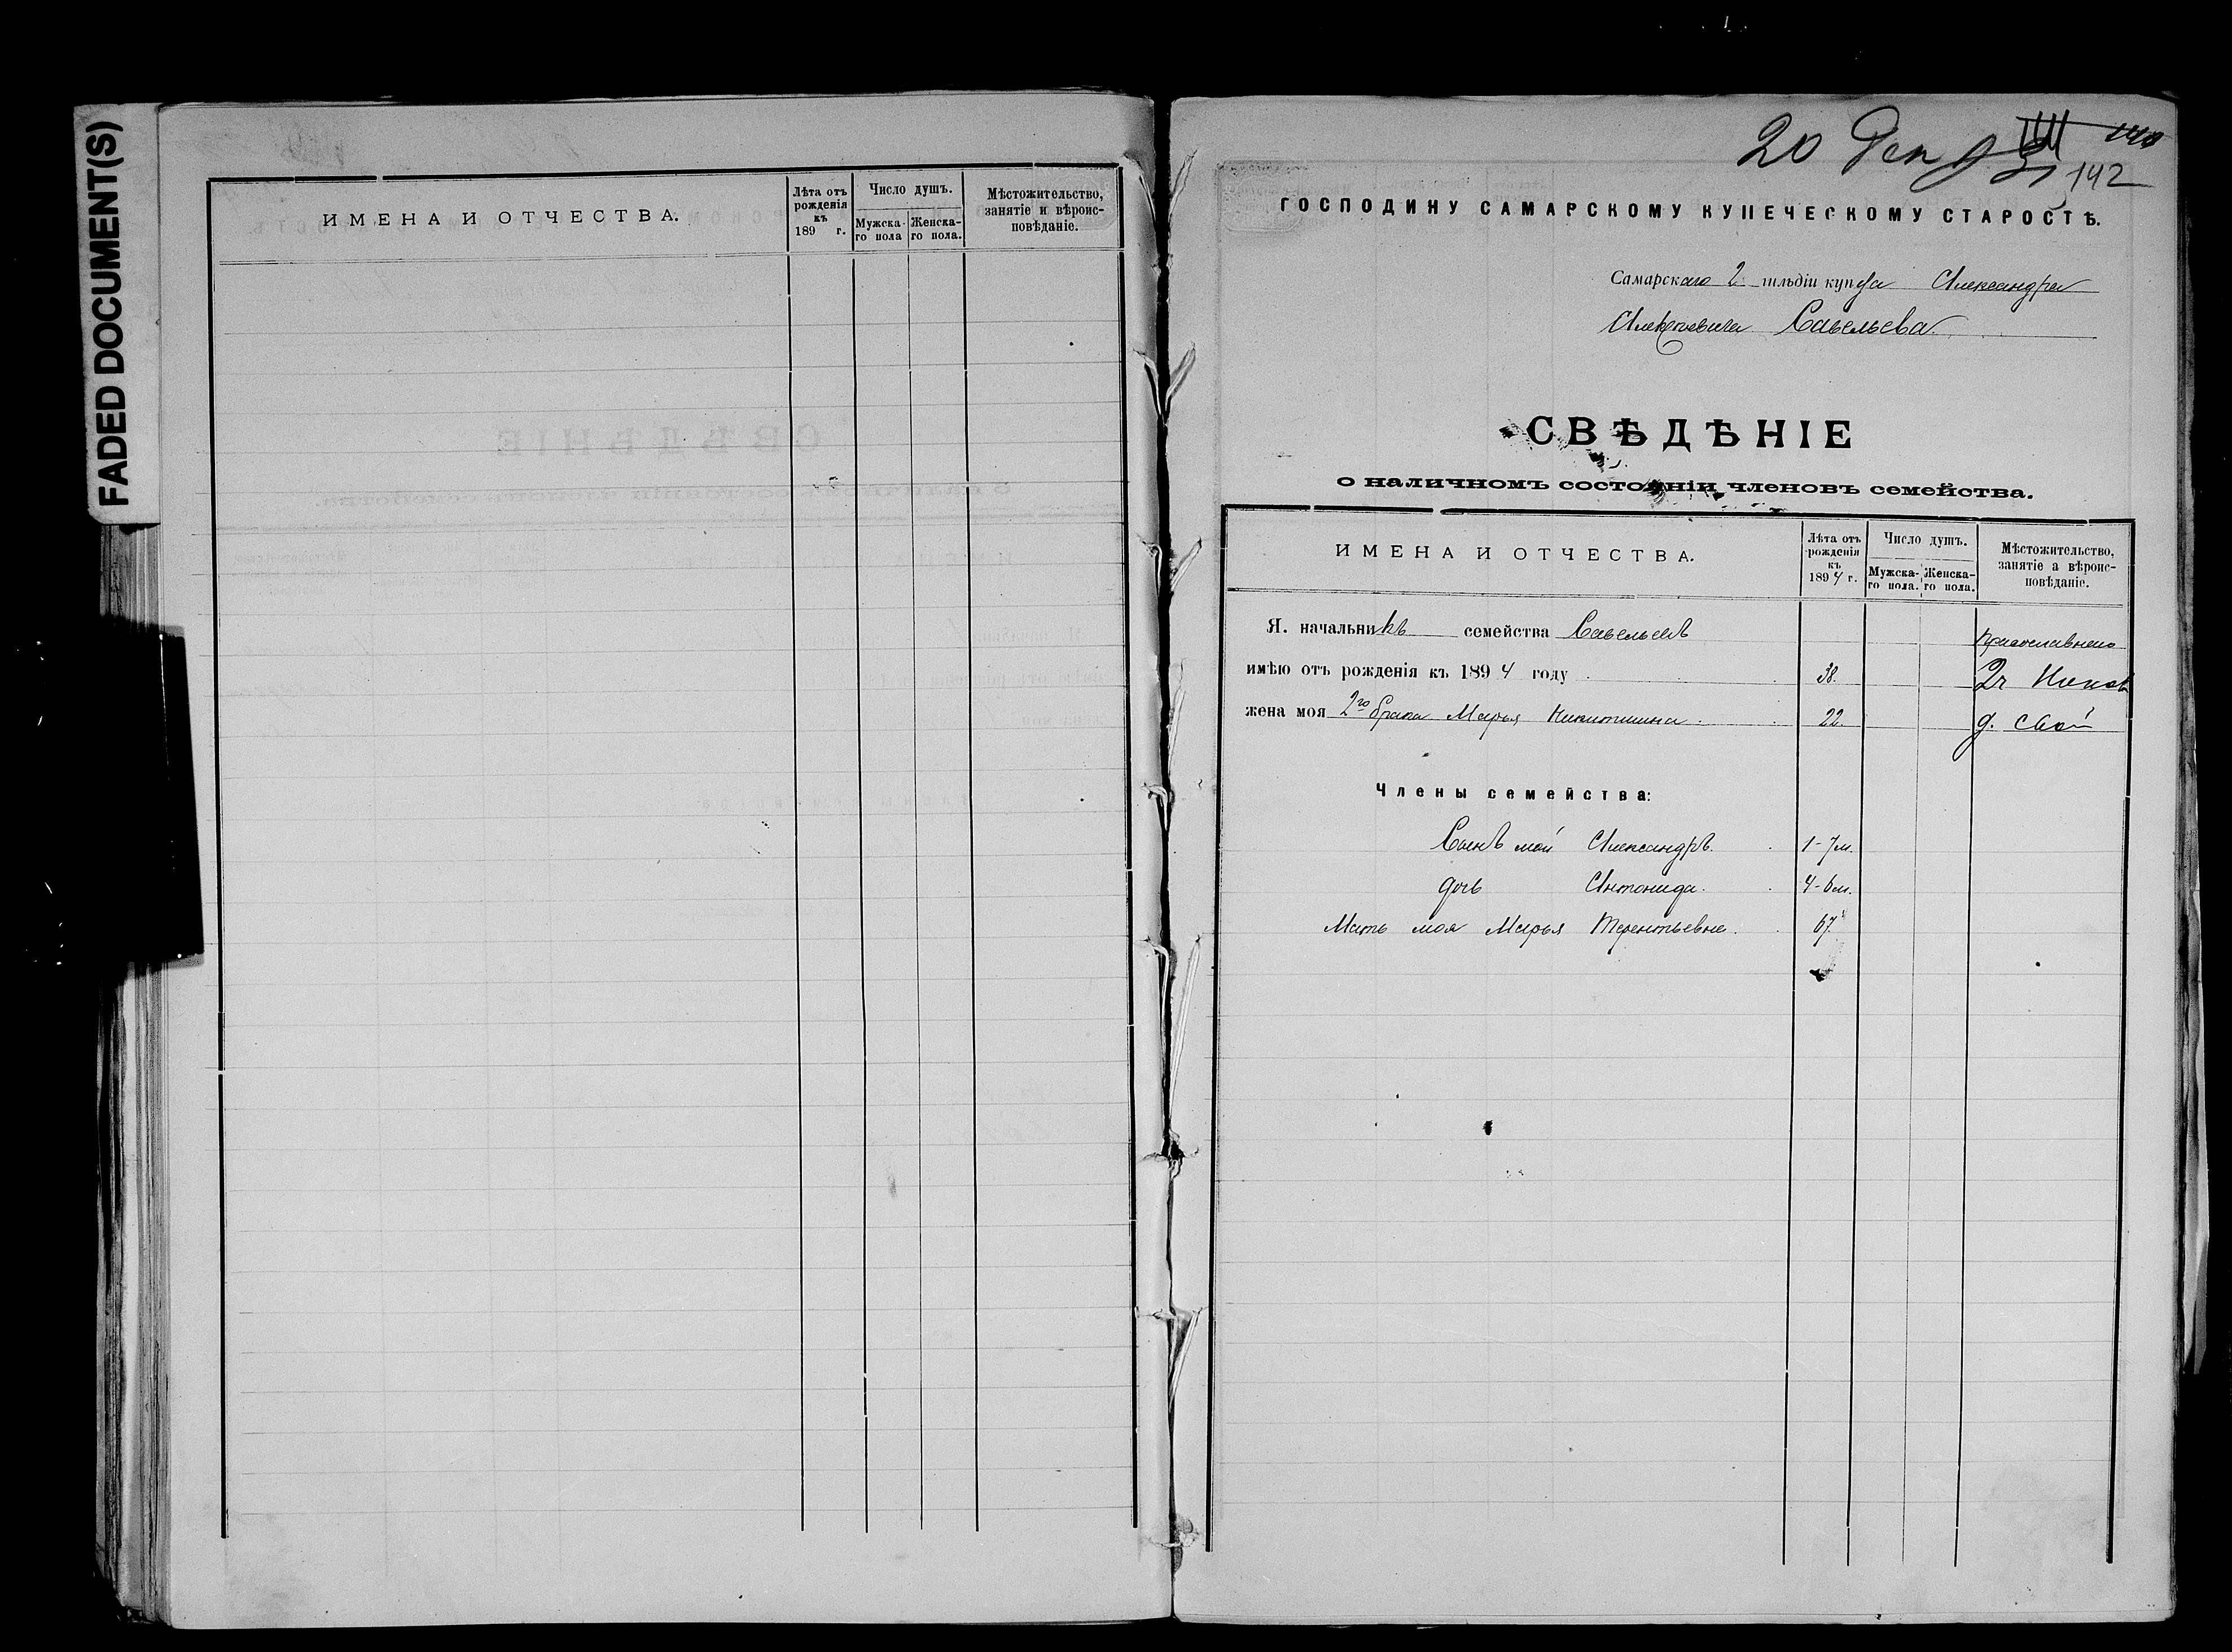 FADED DOCUMENT(S)
ИМЕНА И ОТЧЕСТВА.
Лѣта отъ
рожденія
къ
189 г.
Число душъ.
Мужска-
го пола
Женска-
го пола.
Мѣстожительство,
занятіе и вѣроис-
повѣданіе.
20 Дек 93
142
ГОСПОДИНУ САМАРСКОМУ КУПЕЧЕСКОМУ СТАРОСТѢ.
Самарскаго 2 гильдіи купца Александра
Алексѣевича Савельева
СВѢДѢНІЕ
о наличномъ состояніи членовъ семейства.
ИМЕНА И ОТЧЕСТВА.
Лѣта отъ
рожденія
къ
1894 г.
Число душъ.
Мужска-
го пола.
Женска-
го пола.
Мѣстожительство,
занятіе а вѣроис-
повѣданіе.
Я. начальникъ семейства Савельевъ
православнаго
имѣю отъ рожденія къ 1894 году 38.
жена моя 2го брака Марья Никитишна 22.
д. свой
Члены семейства:
Сынъ мой Александръ. 1-7 м.
дочь Антонида. 4-6 м.
Мать моя Марья Терентьевна. 67